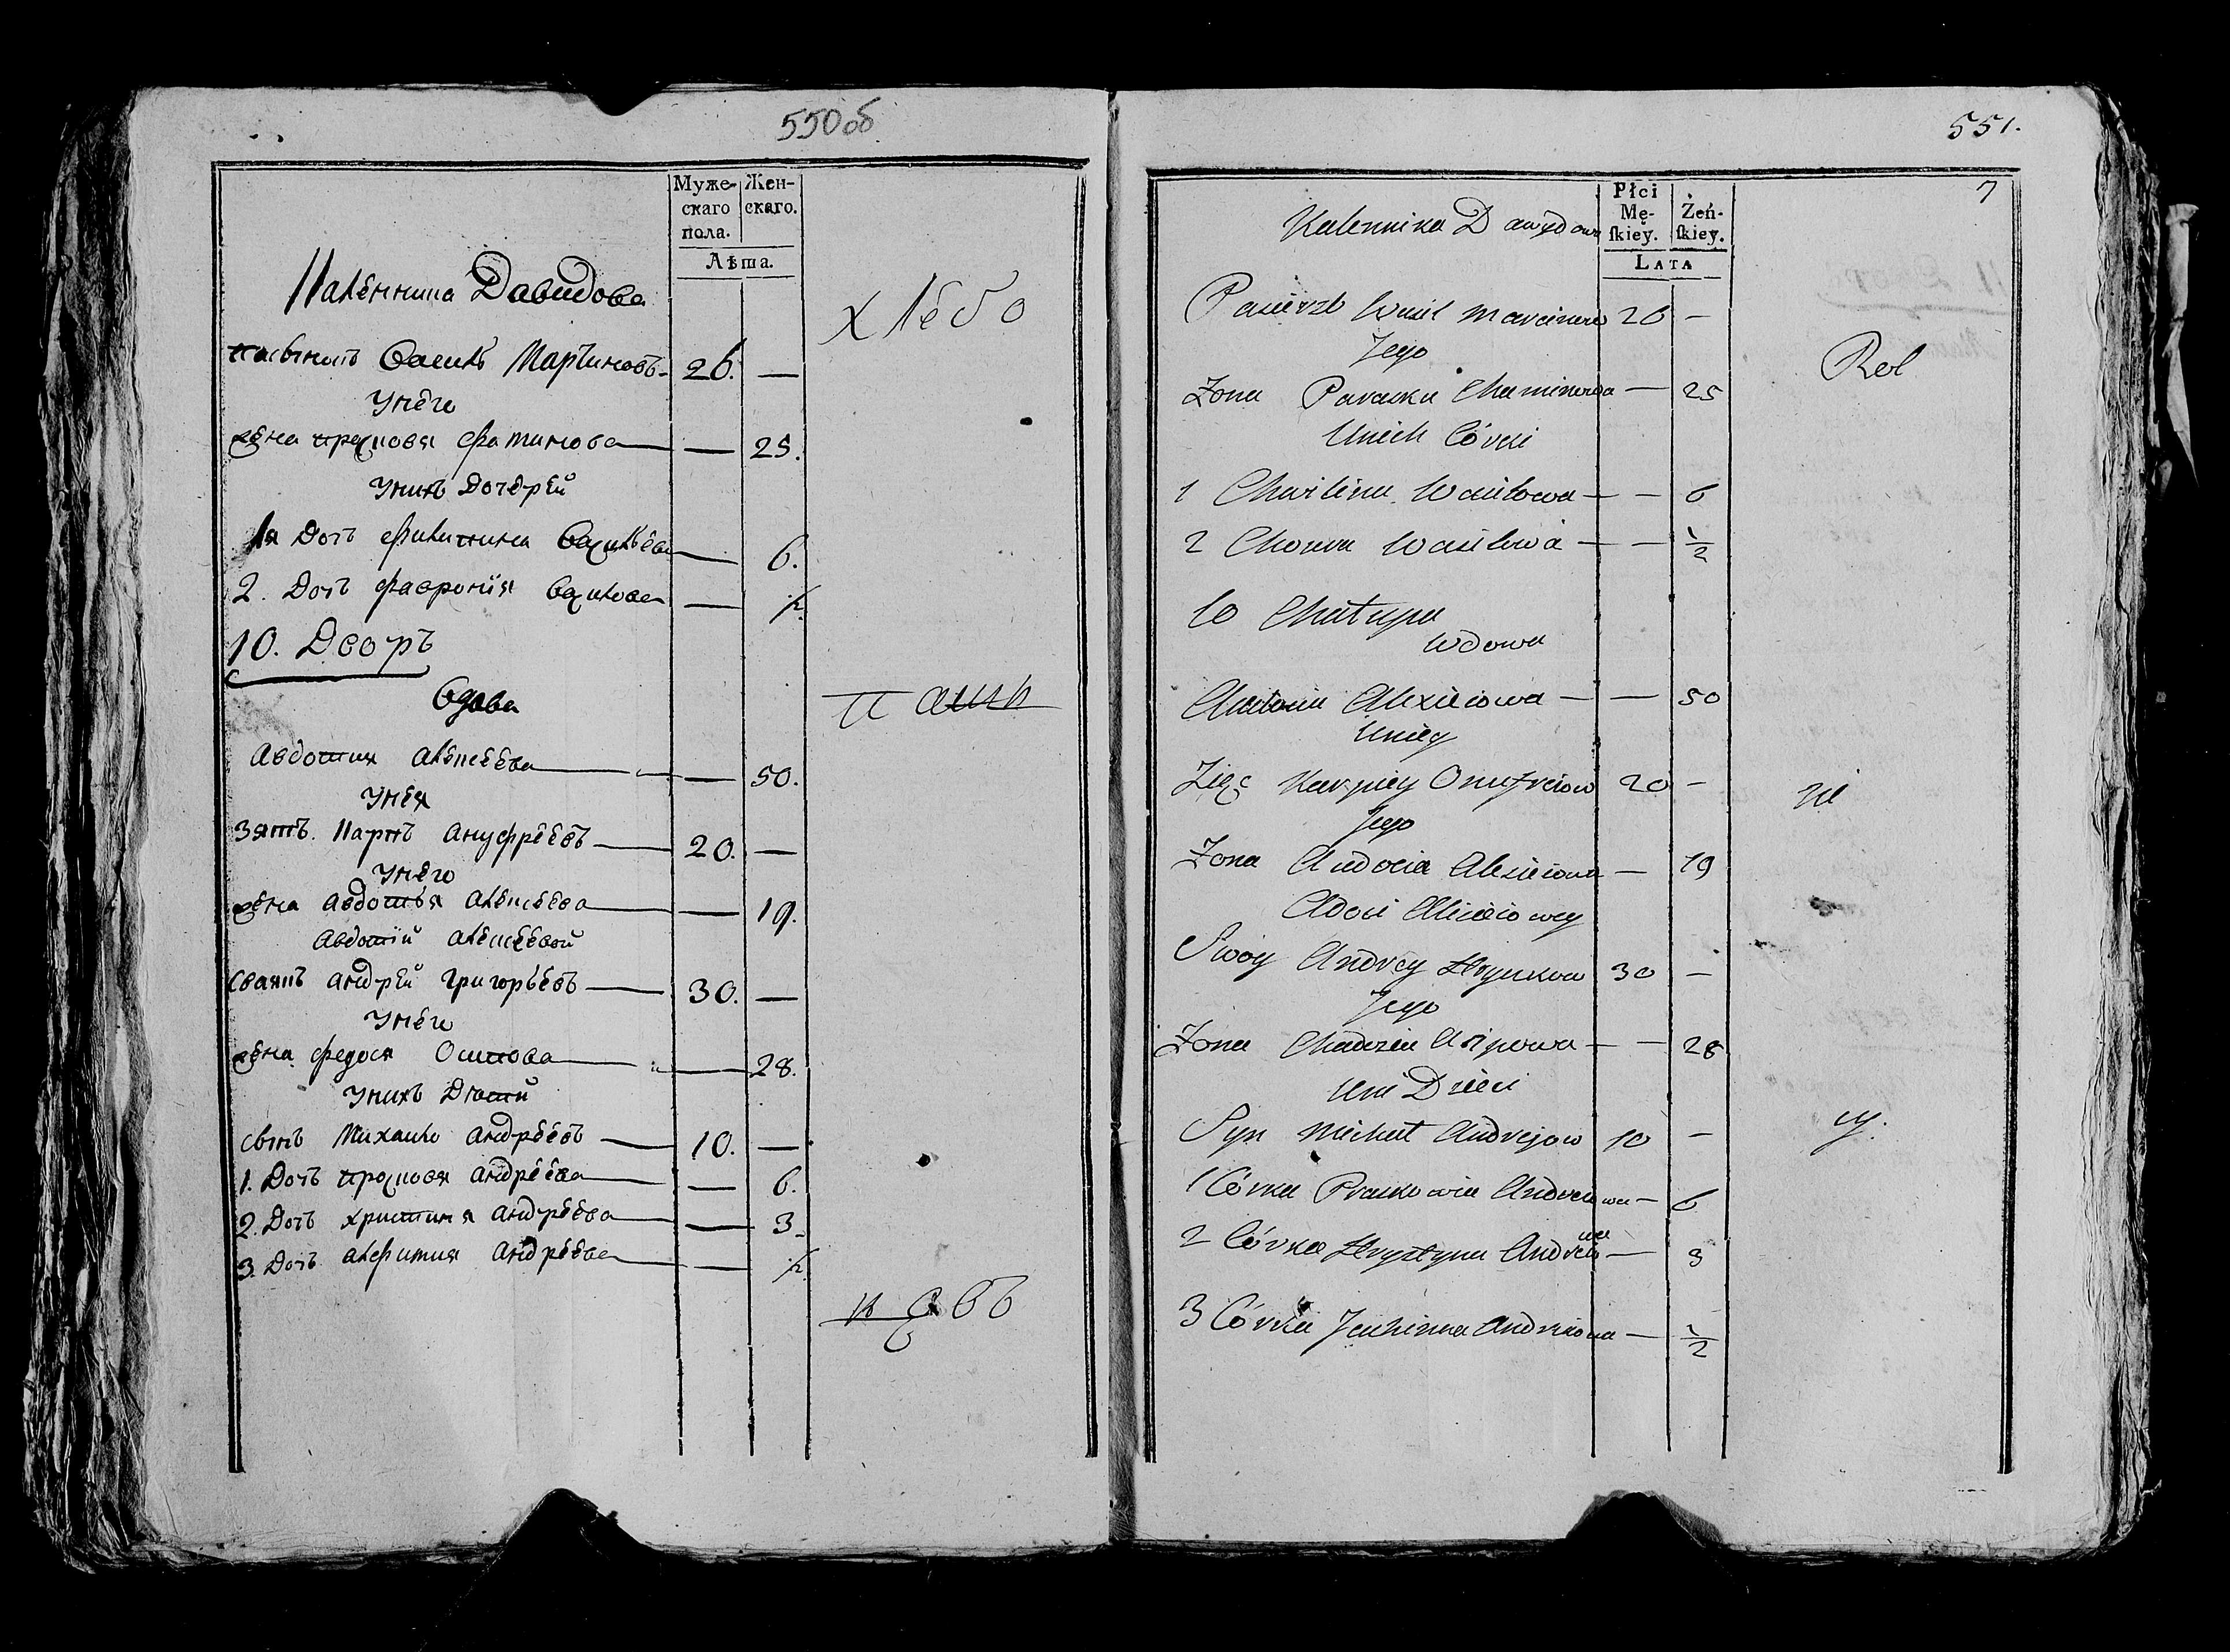 550об
Муже-
скаго
пола.
Жен-
скаго.
Лѣта.
Калённика Давидова
пасынокъ Василь Мартиновъ 26. —
Унего
жена прасковя фатимова — 25.
Унихъ Дочерей
1я Дочь филипина Василъева — 6.
2. Дочь фавронія Василова — ½.
10. Дворъ
Вдова
Авдотия алексеева — 50.
Унея
Зять. Карпъ ануфреевъ 20. —
Унего
жена авдотья алексеева — 19.
авдотіи алексеевой
сваякъ андрей григорьевъ 30. —
Унего
жена федося Осипова — 28.
Унихъ Дѣтй
сынъ михаило андреевъ 10. —
1. Дочь прасковя андреева — 6.
2. Дочь христиня андреева — 3.
3. Дочь алфимия андреева — ½.
хлебо
паши
цовъ
551.
7
Płci
Mę-
ſkiey.
Żeń-
ſkiey.
LATA
Kalennika Dawydowa
Pasierzb Wasil Marcinow 26 —
Jego
Zona Paraska Chaminowa — 25
Unich Córki
1 Chwilina Wasilowa — — 6
2 Chowra Wasilowa — — ½
10 Chałupa
Wdowa
Audocia Alexieiowa — — 50
Uniey
Zięć Karpiey Onufreiow 20 —
Jego
Zona Audocia Alexieiowa — 19
Adoci Alexieiowey
Swoy Andrey Hrynkow 30 —
Jego
Zona Chadzia Asipowa — — 28
Uni Dzieci
Syn Michał Andrejow 10 —
1 Córka Praskowia Andreiowa — 6
2 Córka Hrystyna Andreiowa — 3
3 Córka Jauhinna Andreiowa — ½
Rol
ni
cy.